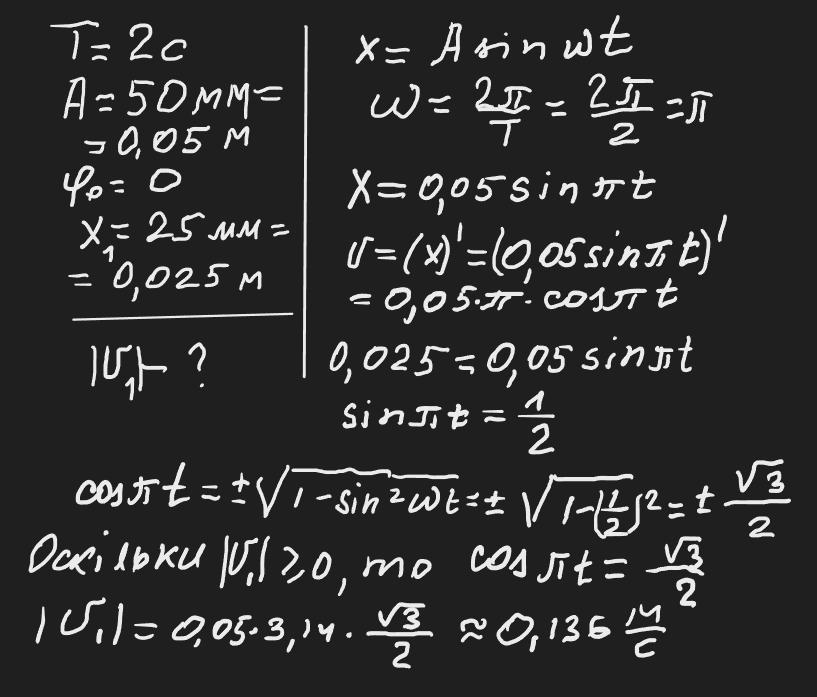 T = 2 с
A = 50 мм =
= 0,05 м
φ₀ = 0
x₁ = 25 мм =
= 0,025 м
|υ₁| - ?
x = A sin ωt
ω = 2π/T = 2π/2 = π
X = 0,05 sin πt
υ = (x)' = (0,05 sin πt)'
= 0,05·π·cos πt
0,025 = 0,05 sin πt
sin πt = 1/2
cos πt = ±√(1 - sin²ωt) = ±√(1-(1/2)²) = ± √3/2
Оскільки |υ₁| ≥ 0, то cos πt = √3/2
|υ₁| = 0,05·3,14·√3/2 ≈ 0,136 м/с